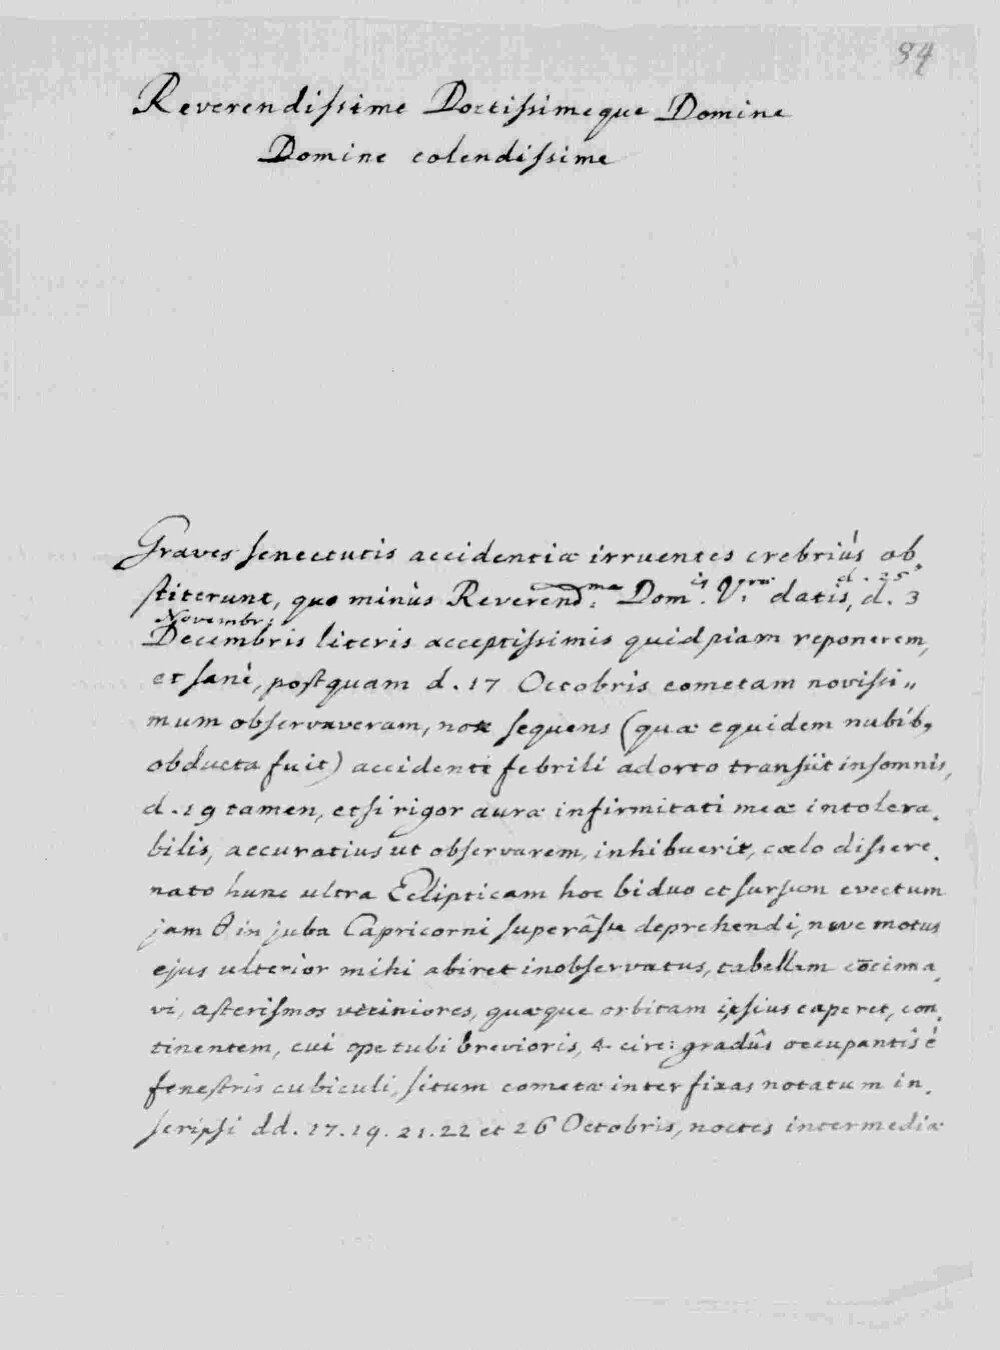 84
Reverendissime Doctissimeque Domine
Domine colendissime
Graves senectutis accidentiæ irruentes crebriùs ob,
stiterunt, quo minùs Reverend:ma Dom.is V.ræ datis, d. 25
d. 3
Novembr:
Decembris literis acceptissimis quidpiam reponerem,
et sanè, postquam d. 17 Octobris cometam novissi„
mum observaveram, nox sequens (quæ equidem nubib,
obducta fuit) accidenti febrili adorto transiit insomnis,
d. 19 tamen, etsi rigor auræ infirmitati meæ intolera,
bilis, accuratius ut observarem, inhibuerit, cœlo dissere,
nato hunc ultra Eclipticam hoc biduo et sursum evectum
jam θ in juba Capricorni superâsse deprehendi, neve motus
ejus ulterior mihi abiret inobservatus, tabellam cōcinna,
vi, asterismos viciniores, quæque orbitam ipsius caperet, con,
tinentem, cui ope tubi brevioris, 4 circ: gradûs occupantis è
fenestris cubiculi, situm cometæ inter fixas notatum in,
scripsi dd. 17. 19. 21. 22 et 26 Octobris, noctes intermediæ